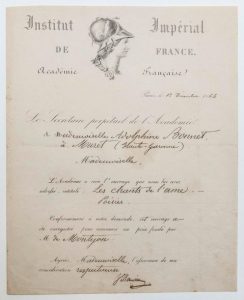 Institut Impérial
DE FRANCE.
Académie Française
Paris, le 12 Décembre
Le Secrétaire perpétuel de l'Académie
à Mademoiselle Adolphine Bonnet
à Muret (Haute Garonne)
Mademoiselle,
L'Académie a reçu l'ouvrage que vous lui avez
adressé, intitulé: Les chants de l'âme
Poésies
Conformément à votre demande cet ouvrage a
été enregistré pour concourir au prix fondé par
M. de Montyon
Agréez, Mademoiselle, l'assurance de ma
considération respectueuse